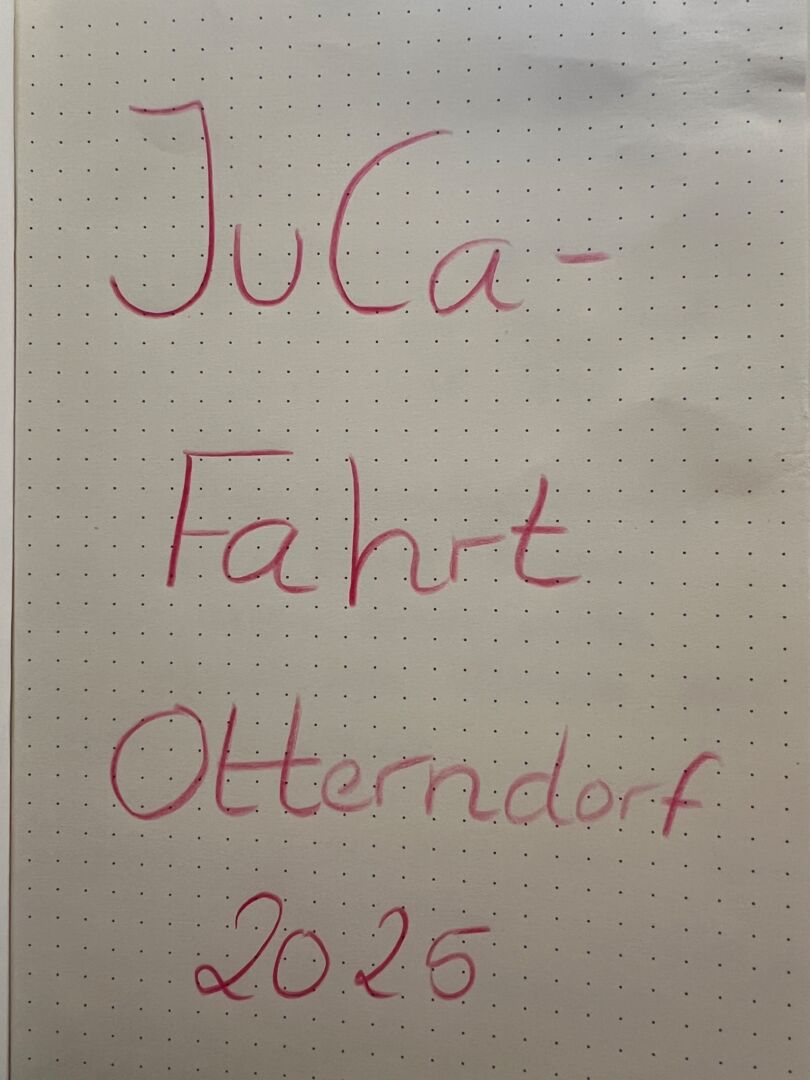 JuCa-
Fahrt
Otterndorf
2025